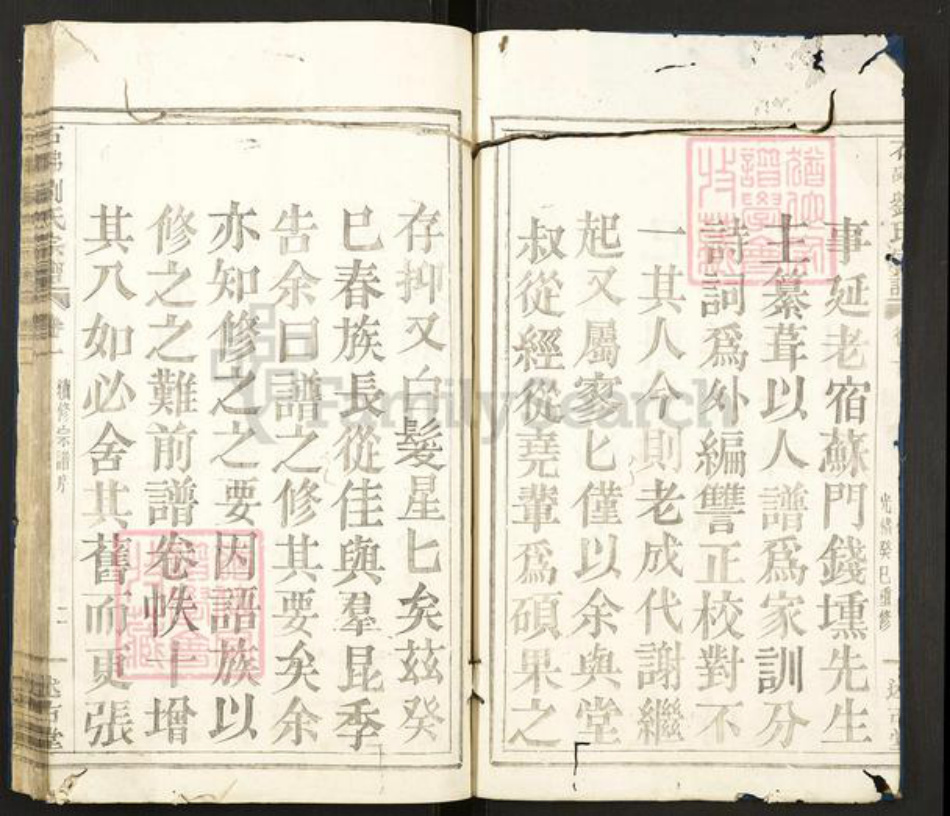 事延老宿蘇門錢壎先生
主纂葺以人譜爲家訓分
詩詞爲外編讐正校對不
一其人今則老成代謝繼
起又屬寥匕僅以余與堂
叔從經從堯輩爲碩果之
光緒癸巳重修
存抑又白髮星匕矣茲癸
巳春族長從佳與羣昆季
告余曰譜之修其要矣余
亦知修之之要因語族以
修之之難前譜卷帙十增
其八如必舍其舊而更張
劉氏宗譜
卷一
續修宗譜序
二
FamilySearch